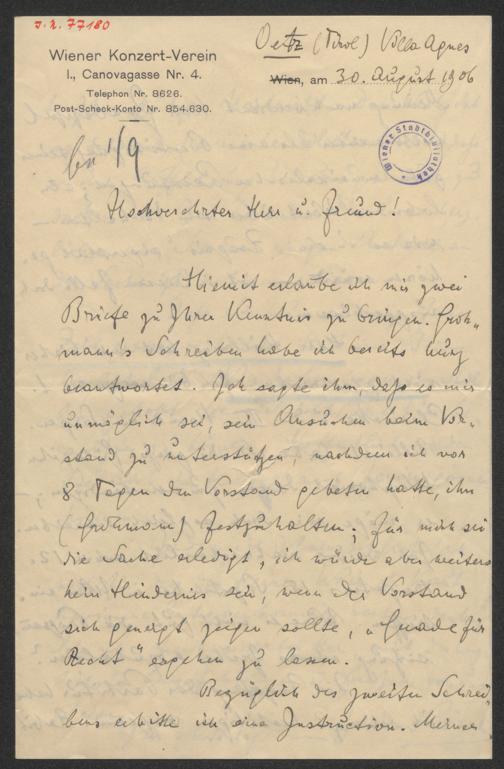 J. N. 77180
Wiener Konzert-Verein
I., Canovagasse Nr. 4.
Telephon Nr. 8626.
Post-Scheck-Konto Nr. 854.630.
Oetz (Tirol) Villa Agnes
Wien, am 30. August 1906
Wiener Stadtbibliothek
1/9
Hochverehrter Herr u. Freund!
Hiemit erlaube ich mir zwei
Briefe zu Ihrer Kenntnis zu bringen. Groh-
mann's Schreiben habe ich bereits kurz
beantwortet. Ich sagte ihm, dass es mir
unmöglich sei, sein Ansuchen beim Vor-
stand zu unterstützen, nachdem ich vor
8 Tagen den Vorstand gebeten hatte, ihn
(Grohmann) festzuhalten; für mich sei
die Sache erledigt, ich würde aber weiters
kein Hindernis sein, wenn der Vorstand
sich geneigt zeigen sollte, „Gnade für
Recht" ergehen zu lassen.
Bezüglich des zweiten Schrei-
bens erbitte ich eine Instruction. Meinen